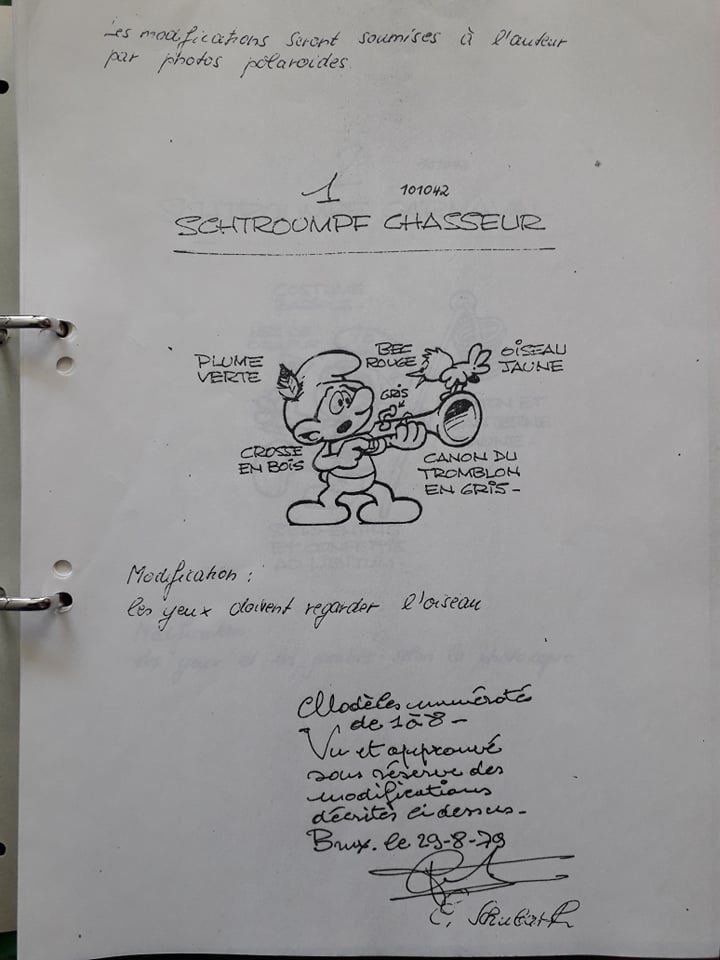 Les modifications seront soumises à l'auteur
par photos polaroides.
1
101042
SCHTROUMPF CHASSEUR
PLUME
VERTE
BEC
ROUGE
OISEAU
JAUNE
GRIS
CROSSE
EN BOIS
CANON DU
TROMBLON
EN GRIS-
Modification :
les yeux doivent regarder l'oiseau
Modèles numérotés
de 1 à 8 -
Vu et approuvé
sous réserve des
modifications
décrites ci dessus -
Brux. le 29-8-79